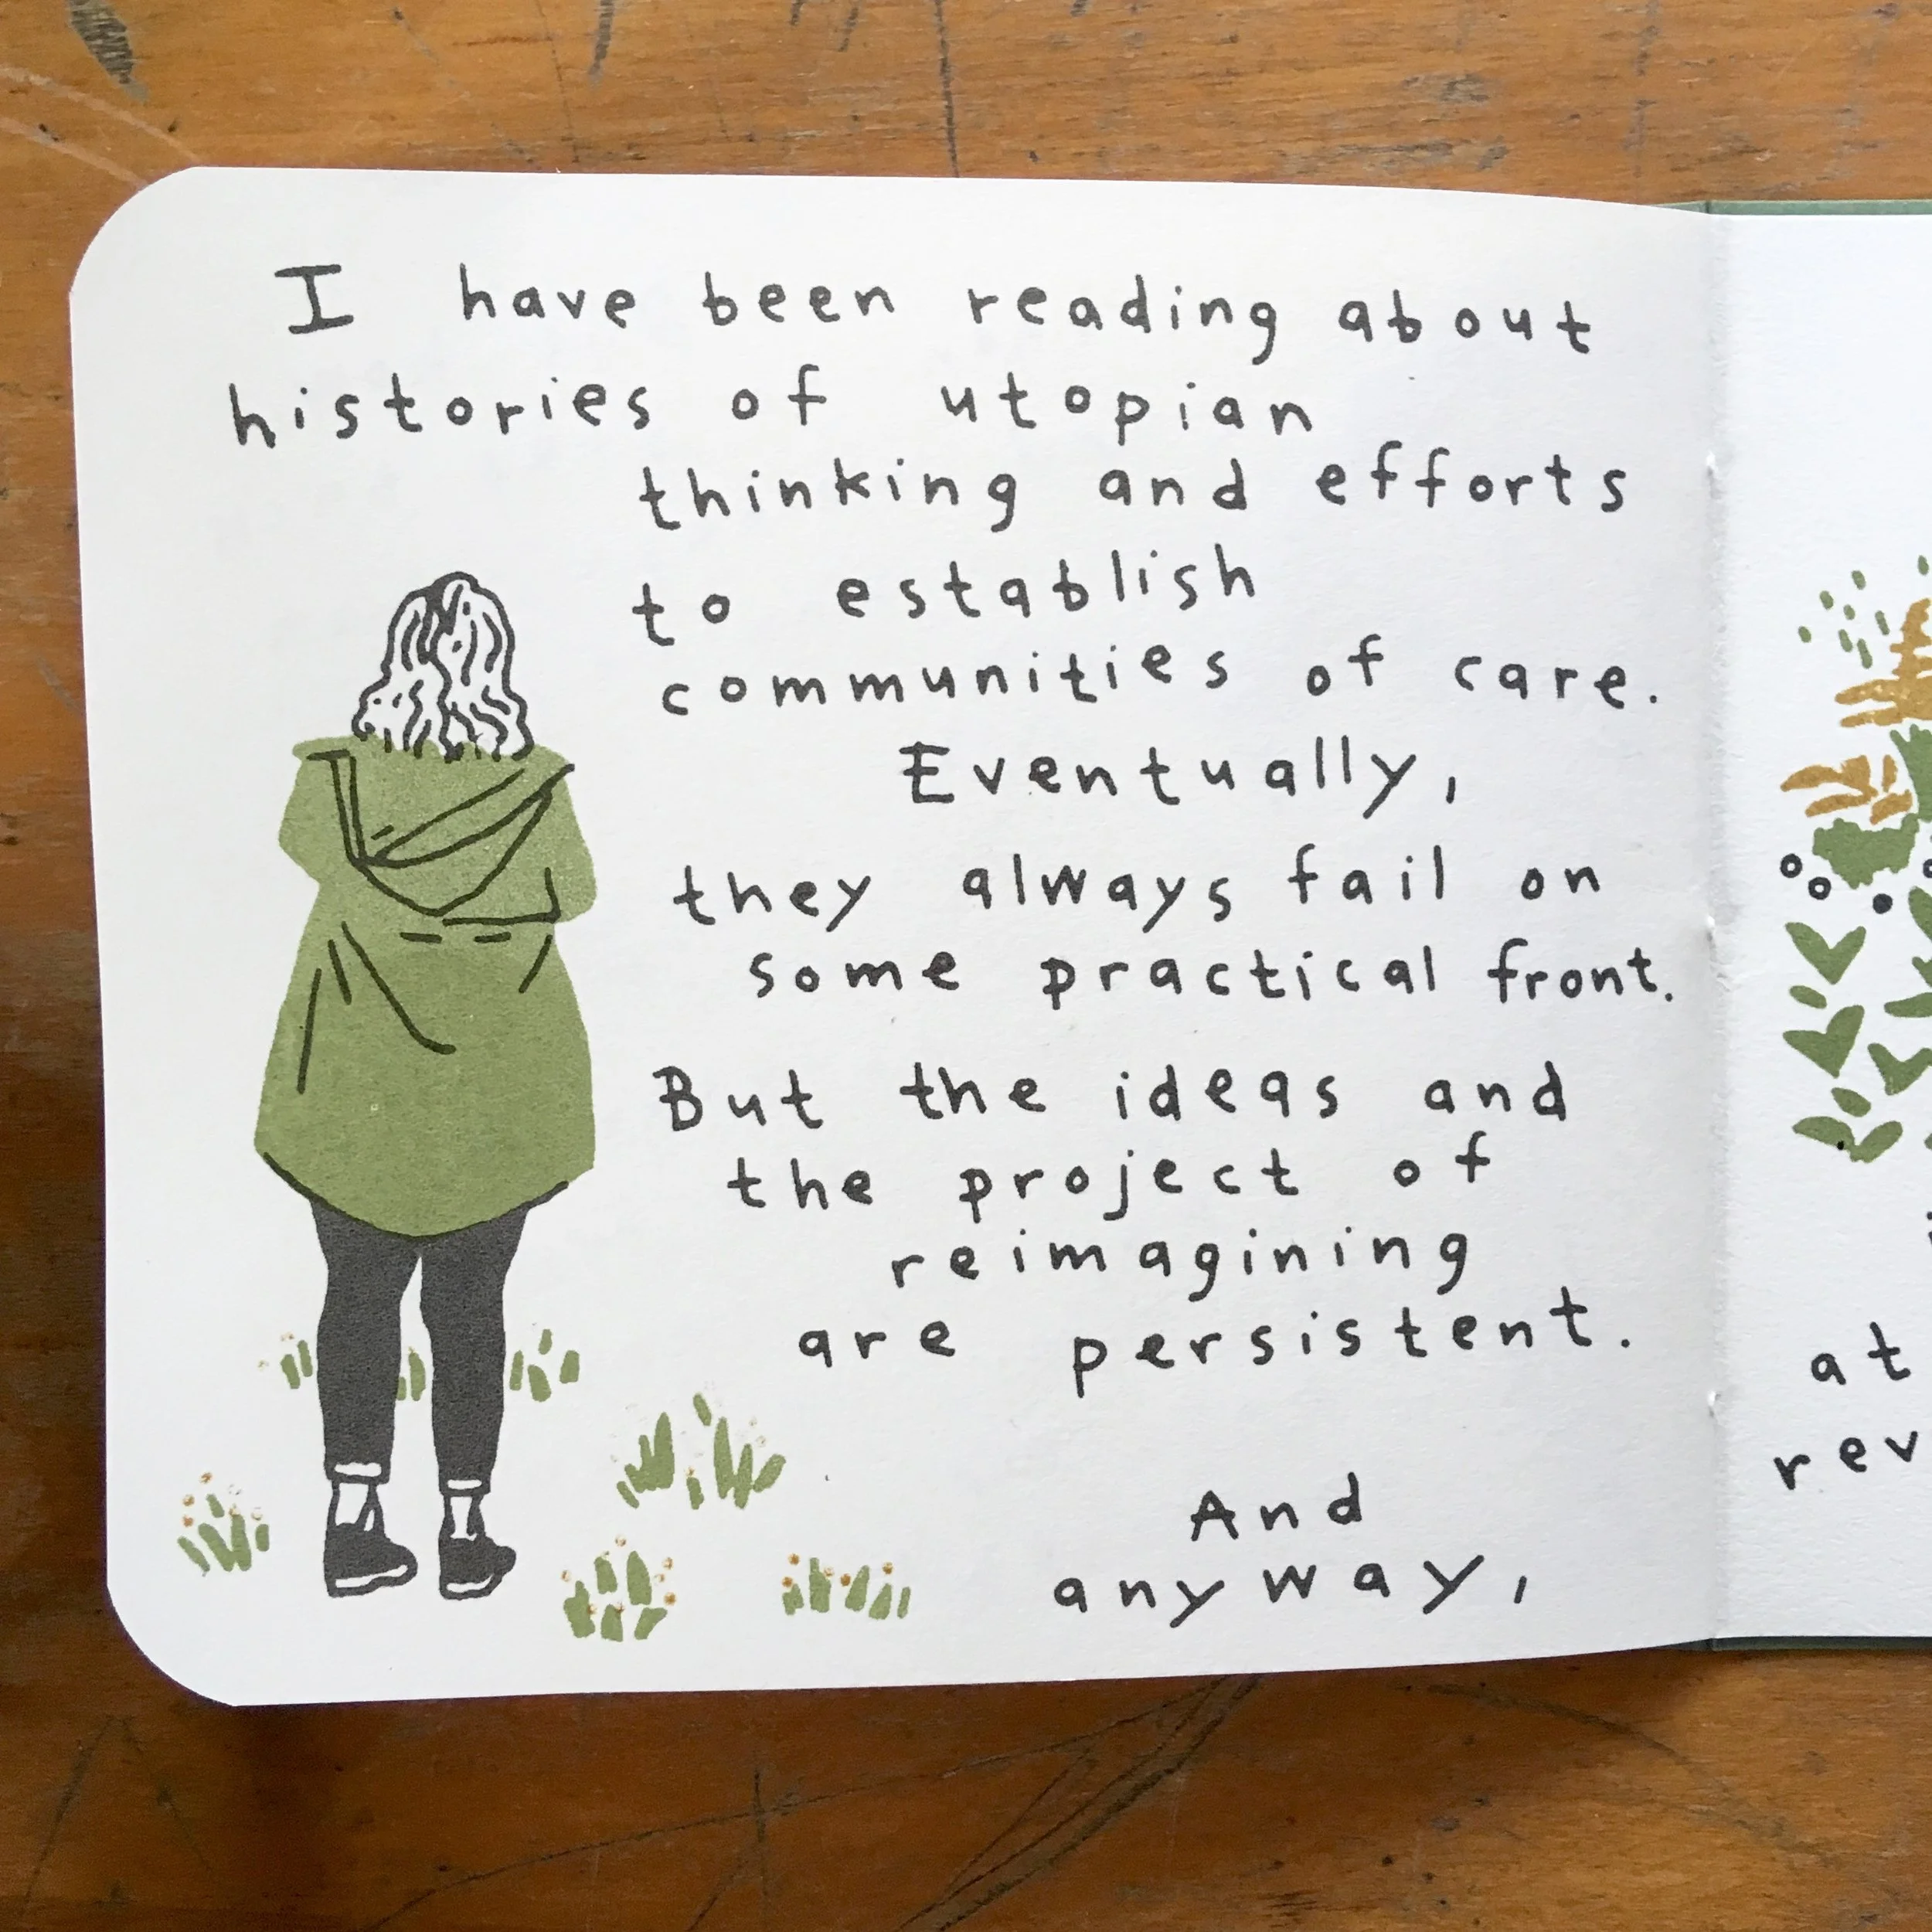 I have been reading about
histories of utopian
thinking and efforts
to establish
communities of care.
Eventually,
they always fail on
some practical front.
But the ideas and
the project of
reimagining
are persistent.
And
anyway,
at